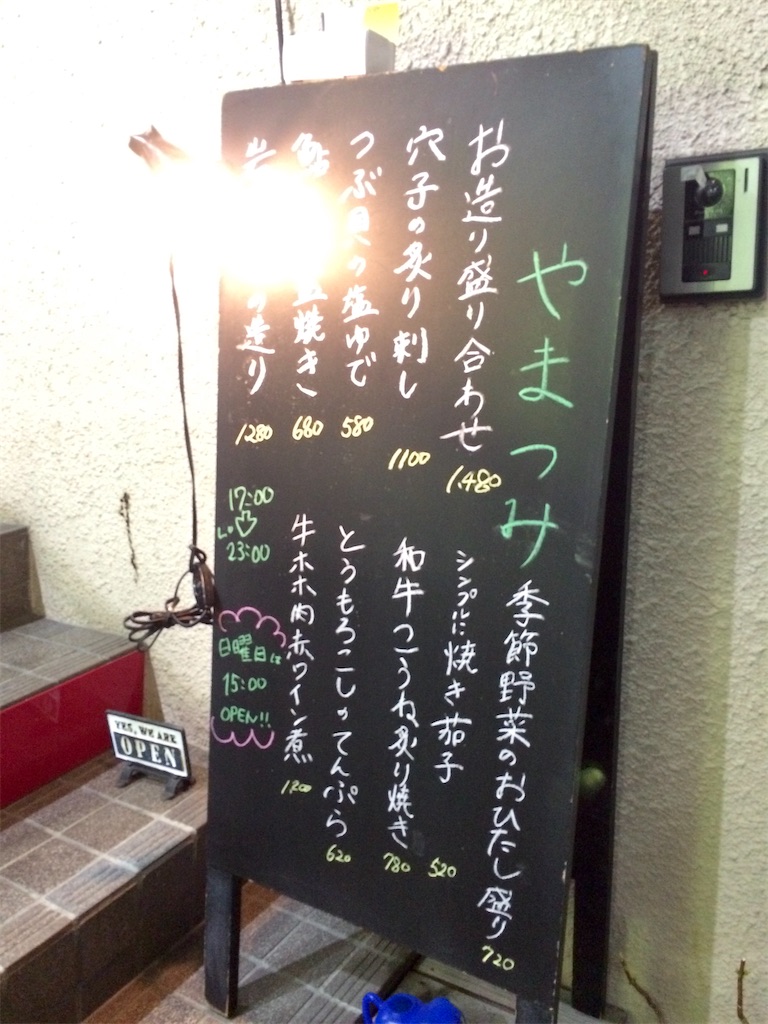 やまつみ
お造り盛り合わせ
1,480
穴子の炙り刺し
1100
つぶ貝の塩ゆで
580
鮎 塩焼き
680
岩 の造り
1280
季節野菜のおひたし盛り
720
シンプルに焼き茄子
520
和牛こうね炙り焼き
780
とうもろこしのてんぷら
620
牛ホホ肉赤ワイン煮
1200
17:00
L.o
23:00
日曜日は
15:00
OPEN!!
YES, WE ARE
OPEN